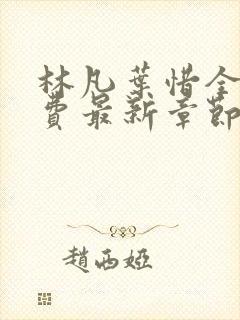 林凡葉惜全
費最新章節
趙西婭